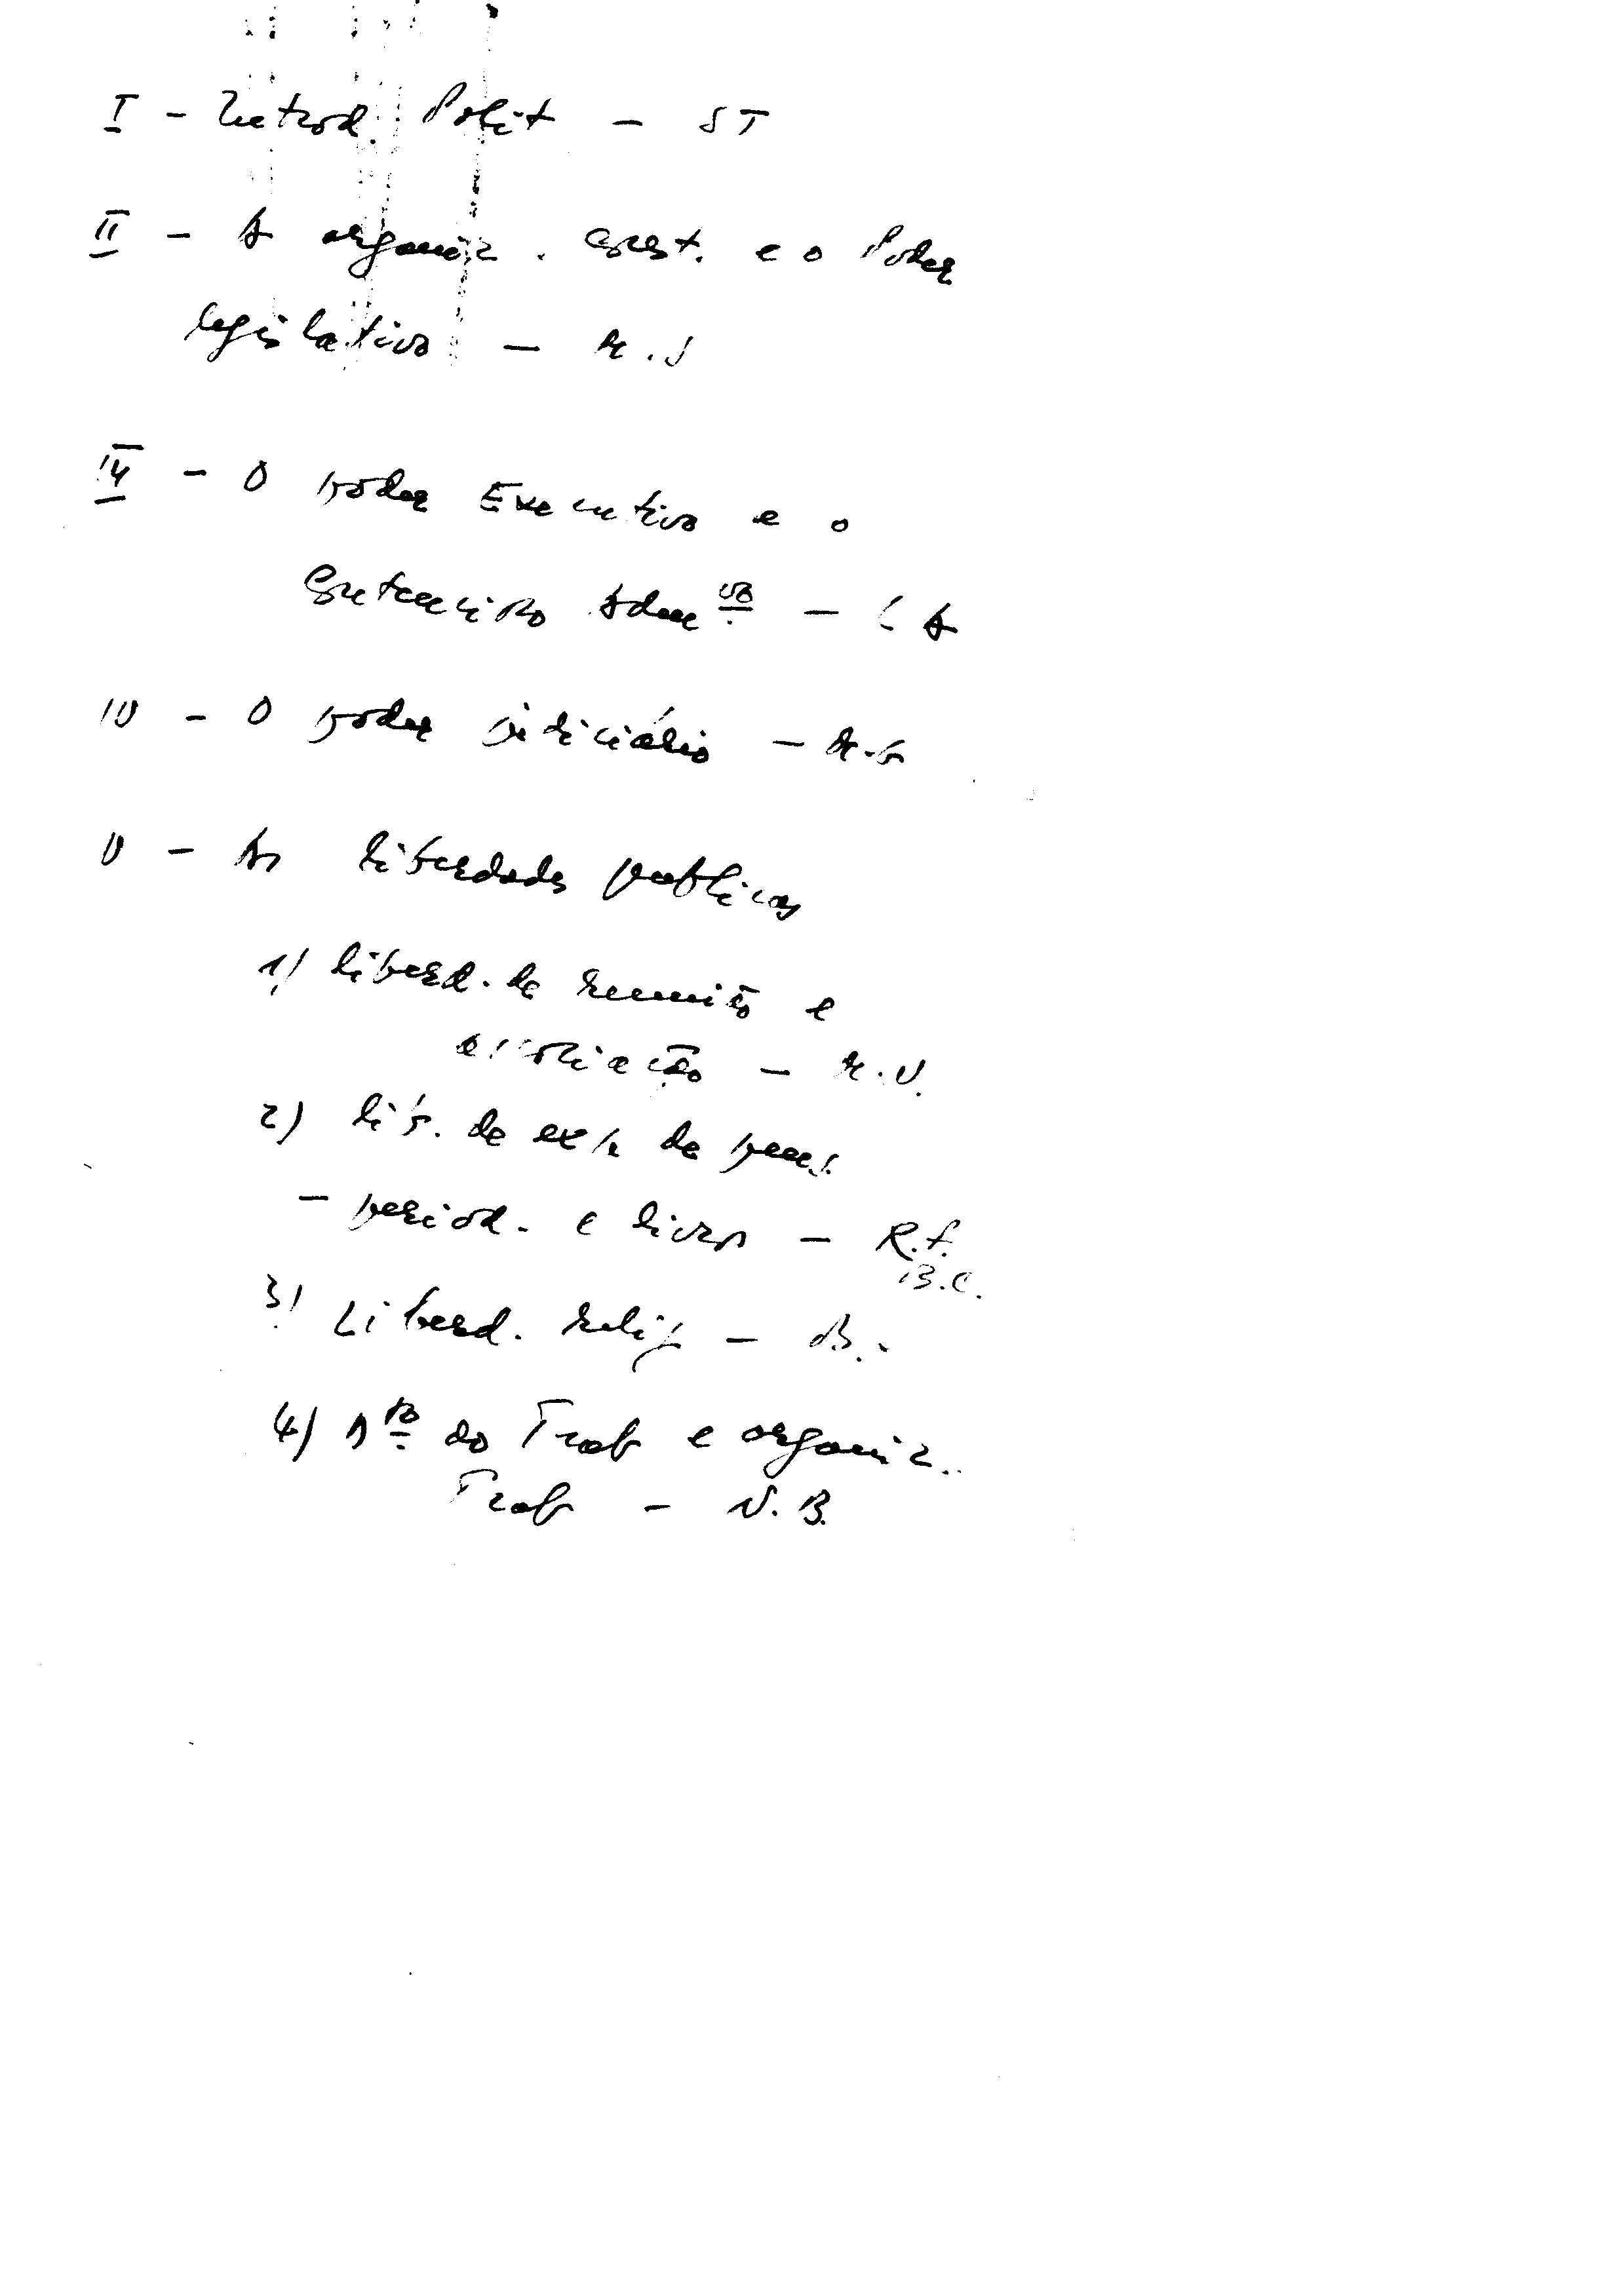 I - Introd. Polít - ST
II - A organiz. Const. e o Poder
legislativo - M.S
- O poder Executivo e o
Contencioso Adm vo - 
IV - O poder judiciário - 
V - As liberdades publicas
1) liberd. de reunião e
associação - M.V.
2) lib. de exp. de pens.
- period. e livros - R.F.
B.C.
3) Liberd. relig - B.
4) do Trab e organiz.
Trab - N.B.